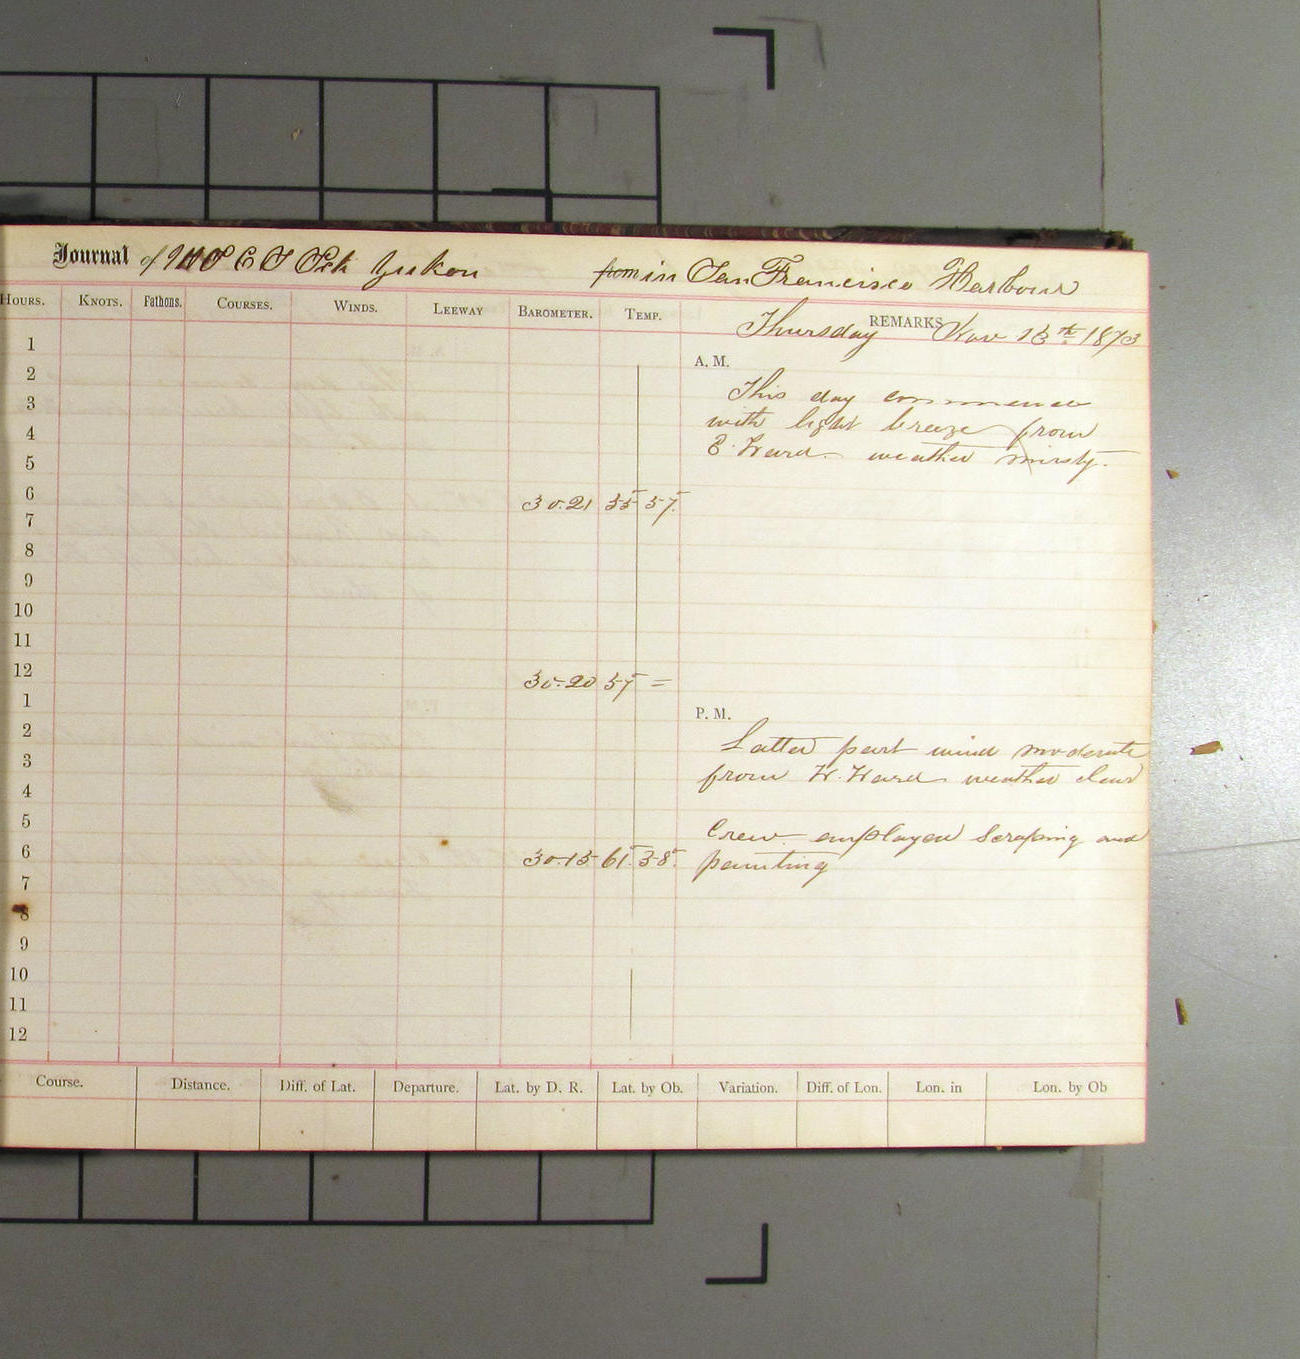 Journal of U S C S Sch Yukon from in San Francisco Harbour
HOURS. KNOTS. Fathoms. COURSES. WINDS. LEEWAY BAROMETER. TEMP. REMARKS
Thursday Nov 13th 1873
1
A. M.
2
This day commence
3
with light breeze from
4
E. Ward weather misty.
5
6 30.21 55 57.
7
8
9
10
11
12 30.20 57 =
1
P. M.
2
Latter part wind moderate
3
from W. Ward weather clear
4
5
Crew employed Scraping and
6 30.15 61. 58. painting
7
8
9
10
11
12
Course. Distance. Diff. of Lat. Departure. Lat. by D. R. Lat. by Ob. Variation. Diff. of Lon. Lon. in Lon. by Ob